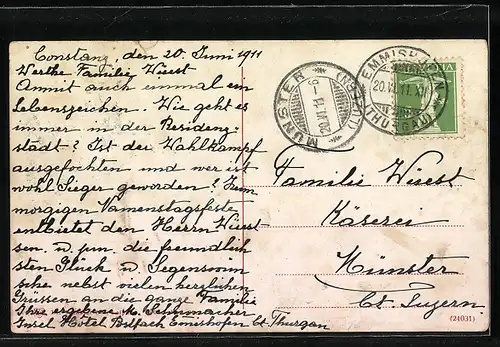 Constanz, den 20. Juni 1911
Werthe Familie Wiest
Anmit auch einmal ein
Lebenszeichen. Wie geht es
immer in der Residenz-
stadt? Ist der Wahlkampf
ausgefochten und wer ist
wohl Sieger geworden? Zum
morgigen Namenstagsfeste
entbietet den Herrn Wiest
sen. u. jun. die freundlich
sten Glück u. Segenswün
sche nebst vielen herzlichen
Grüssen an die ganze Familie
Ihre ergebene M. Schumacher
Insel Hôtel Postfach Emishofen Ct. Thurgau
MÜNSTER (LUZERN)
20.VI.11.-6
EMMISHOFEN
20.VI.11.XI
(THURGAU)
HELVETIA
Familie Wiest
Käserei
Münster
Ct. Luzern.
(24031)